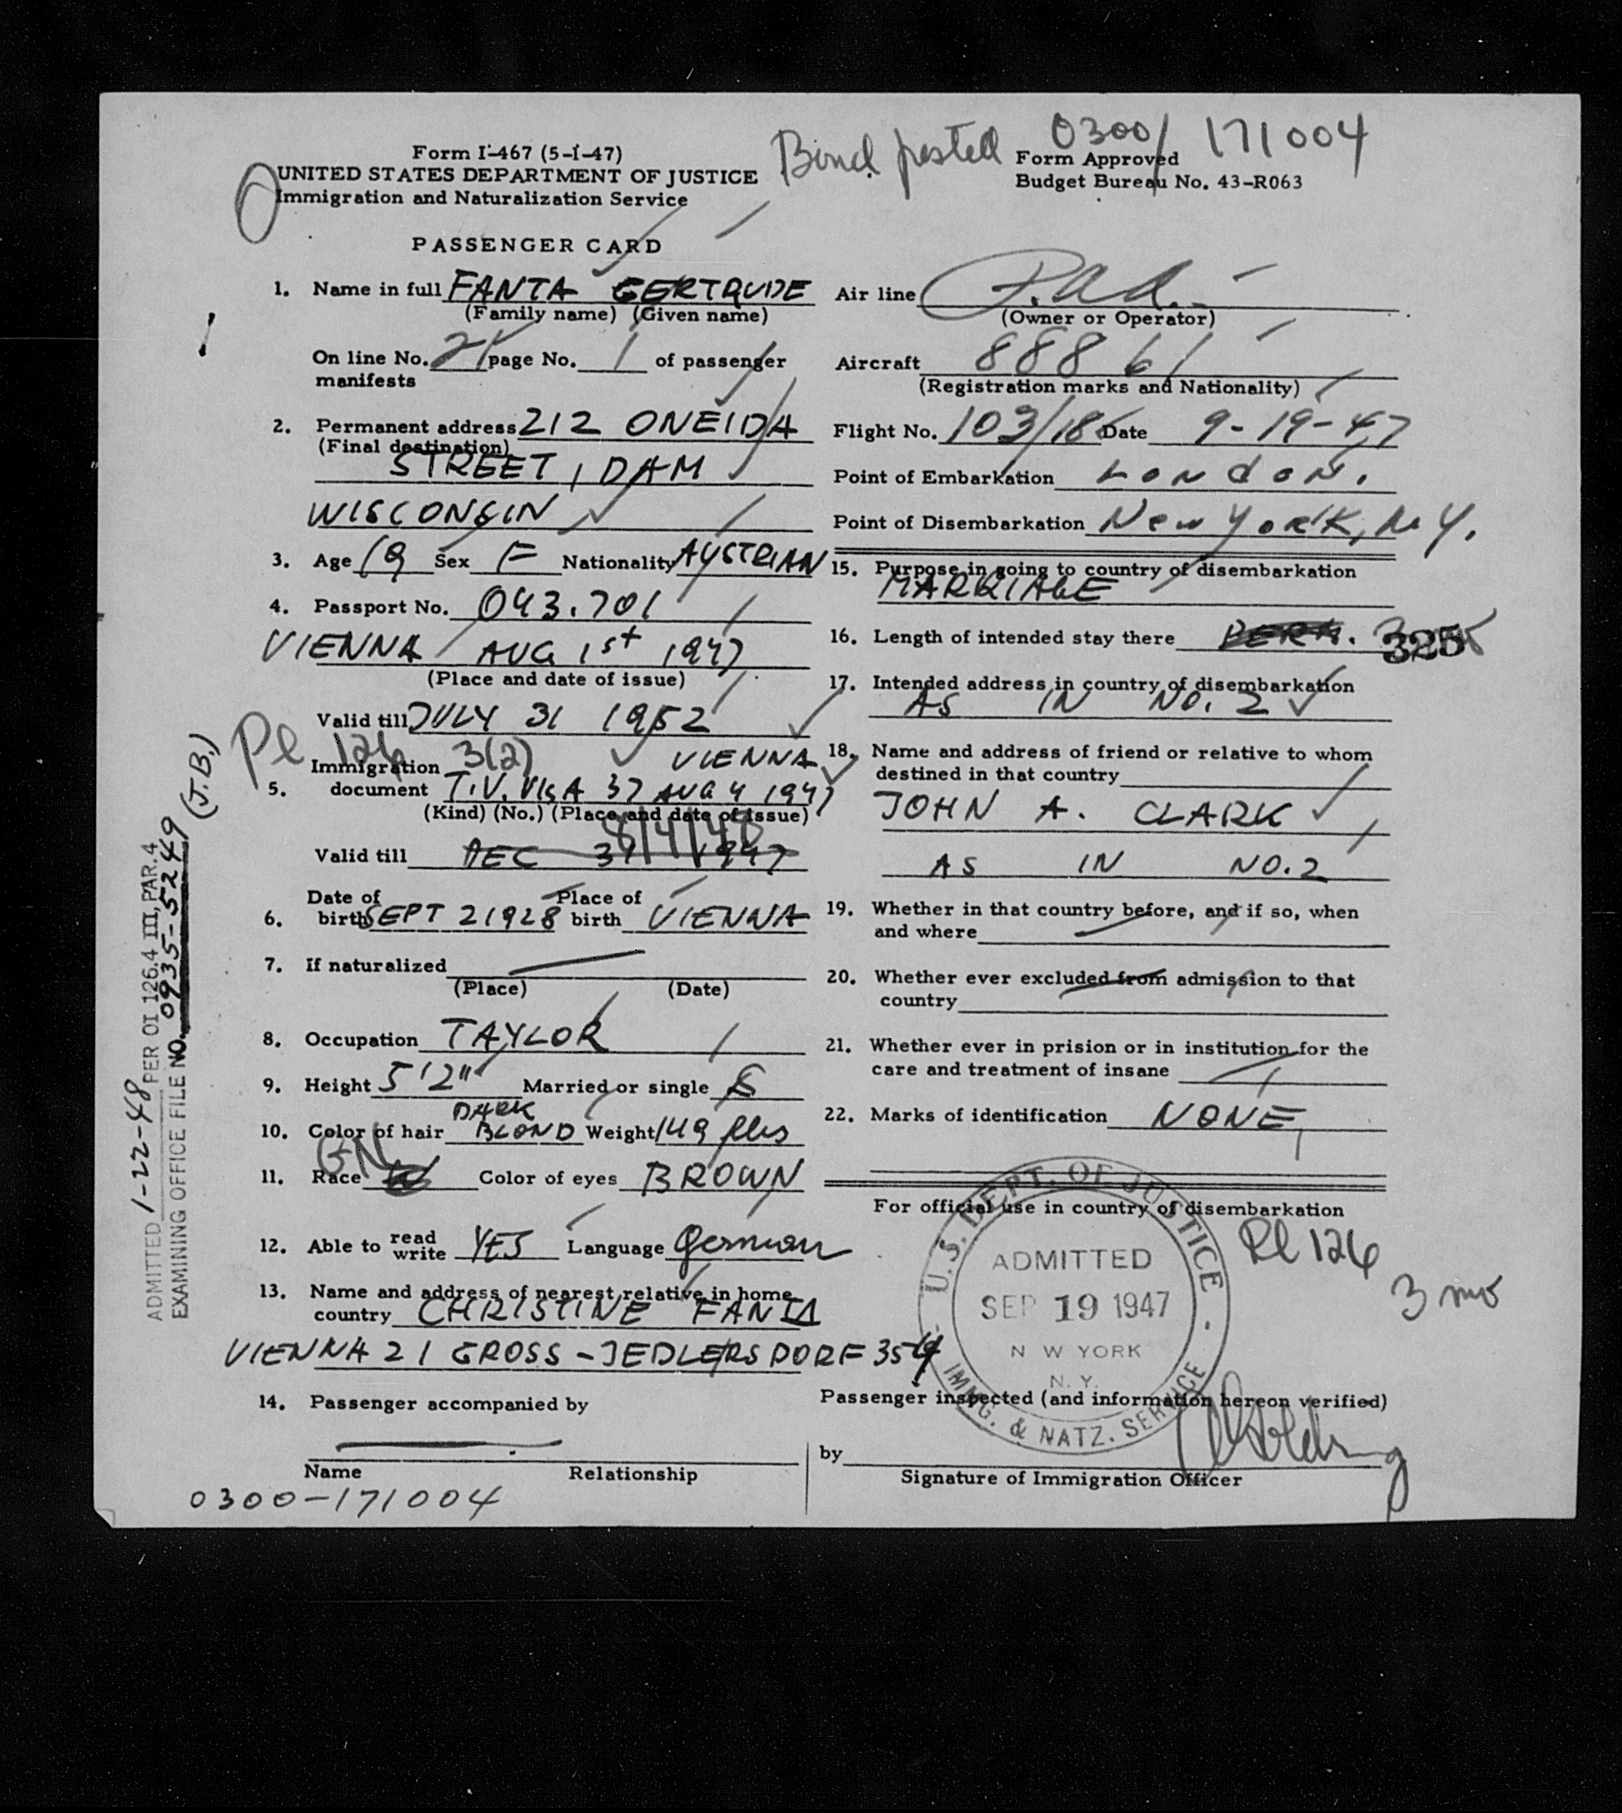 Bond posted 0300/171004
Form I-467 (5-1-47)
UNITED STATES DEPARTMENT OF JUSTICE
Immigration and Naturalization Service
Form Approved
Budget Bureau No. 43-R063
PASSENGER CARD
1. Name in full FANTA GERTRUDE
(Family name) (Given name)
On line No. 21 page No. 1 of passenger
manifests
2. Permanent address 212 ONEIDA
(Final destination)
STREET, DAM
WISCONSIN
3. Age 19 Sex F Nationality AUSTRIAN
4. Passport No. 043.701
VIENNA AUG 1st 1947
(Place and date of issue)
Valid till JULY 31 1952
Pl 126 3(2) VIENNA
5. Immigration
document T.V. VISA 37 AUG 4 1947
(Kind) (No.) (Place and date of issue)
8/4/48
Valid till DEC 31 1947
6. Date of birth SEPT 2 1928 Place of birth VIENNA
7. If naturalized
(Place) (Date)
8. Occupation TAYLOR
9. Height 5'2" Married or single S
10. Color of hair DARK BLOND Weight 149 lbs
GN
11. Race Color of eyes BROWN
12. Able to read write YES Language German
13. Name and address of nearest relative in home
country CHRISTINE FANTA
VIENNA 21 GROSS-JEDLERSDORF 354
14. Passenger accompanied by
Name Relationship
0300-171004
Air line P.A.A.
(Owner or Operator)
Aircraft 88861
(Registration marks and Nationality)
Flight No. 103/18 Date 9-19-47
Point of Embarkation London.
Point of Disembarkation New York, N.Y.
15. Purpose in going to country of disembarkation
MARRIAGE
16. Length of intended stay there PERM. 325
17. Intended address in country of disembarkation
AS IN NO. 2
18. Name and address of friend or relative to whom
destined in that country
JOHN A. CLARK
AS IN NO.2
19. Whether in that country before, and if so, when
and where
20. Whether ever excluded from admission to that
country
21. Whether ever in prision or in institution for the
care and treatment of insane
22. Marks of identification NONE
For official use in country of disembarkation
U.S. DEPT. OF JUSTICE
ADMITTED
SEP 19 1947
N W YORK
N.Y.
IMMG. & NATZ. SERVICE
Pl 126
3 mos
Passenger inspected (and information hereon verified)
by
Signature of Immigration Officer
ADMITTED 1-22-48 PER OI 126.4 III, PAR. 4
EXAMINING OFFICE FILE NO. 0935-5249 (J.B.)